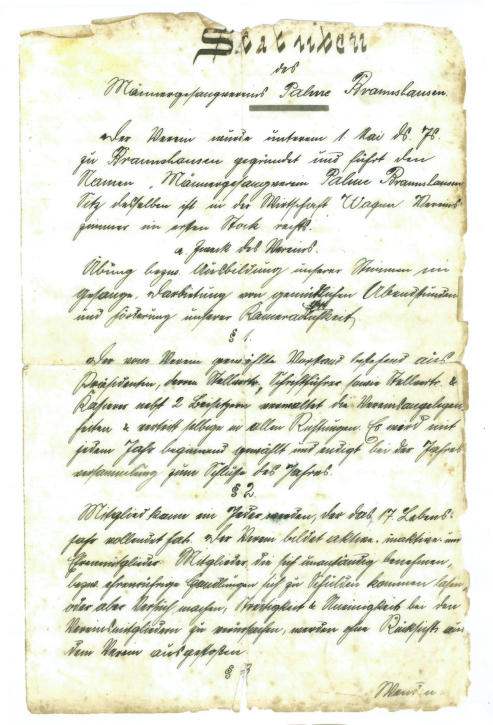 Statuten
des
Männergesangvereins Palme Bramshausen.
Der Verein wurde unterem 1. Mai ds. Js.
zu Bramshausen gegründet und führt den
Namen „Männergesangverein Palme Bramshausen
Sitz desselben ist in der Wirtschaft Wagen Vereins
zimmer im ersten Stock rechts.
a. Zweck des Vereins.
Übung bezw. Ausbildung unserer Stimmen im
Gesange, Darbietung von gemütlichen Abendstunden
und Förderung unserer Kameradschaftlichkeit
§ 1.
Der vom Verein gewählte Vorstand bestehend aus
Präsidenten, deren Stellvertr., Schriftführer sowie Stellvertr. &
Kassierer nebst 2 Beisitzern verwaltet die Vereinsangelegen
heiten & vertritt selbige in allen Richtungen. Er wird mit
jedem Jahr beginnend gewählt und endigt bei der Jahres
versammlung zum Schluße des Jahres.
§ 2.
Mitglied kann ein Jeder werden, der das 17. Lebens-
jahr vollendet hat. Der Verein bildet aktive, inaktive und
Ehrenmitglieder. Mitglieder, die sich unanständig benehmen,
bezw. ehrenrührige Handlungen sich zu Schulden kommen lassen,
oder aber Versuch machen, Streitigkeit & Uneinigkeit bei den
Vereinsmitgliedern zu verursachen, werden ohne Rücksicht aus
dem Verein ausgestoßen.
§ 3